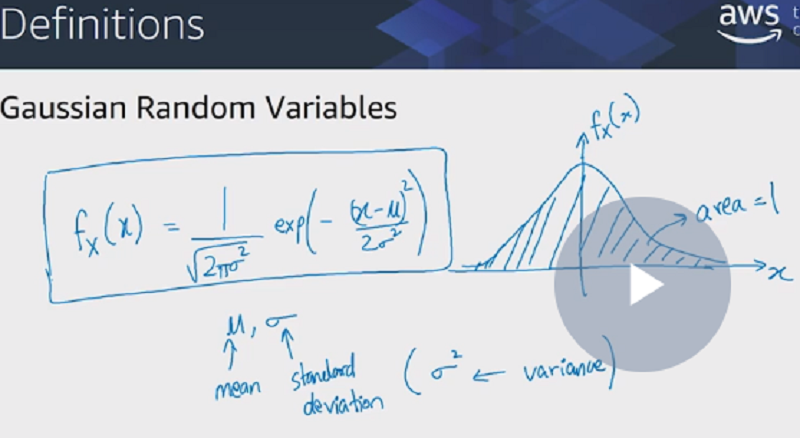 Definitions
aws
Gaussian Random Variables
f_X(x) = 1/√(2πσ²) exp(- (x-μ)²/2σ²)
f_X(x)
area = 1
x
μ, σ
mean
standard deviation
(σ² ← variance)